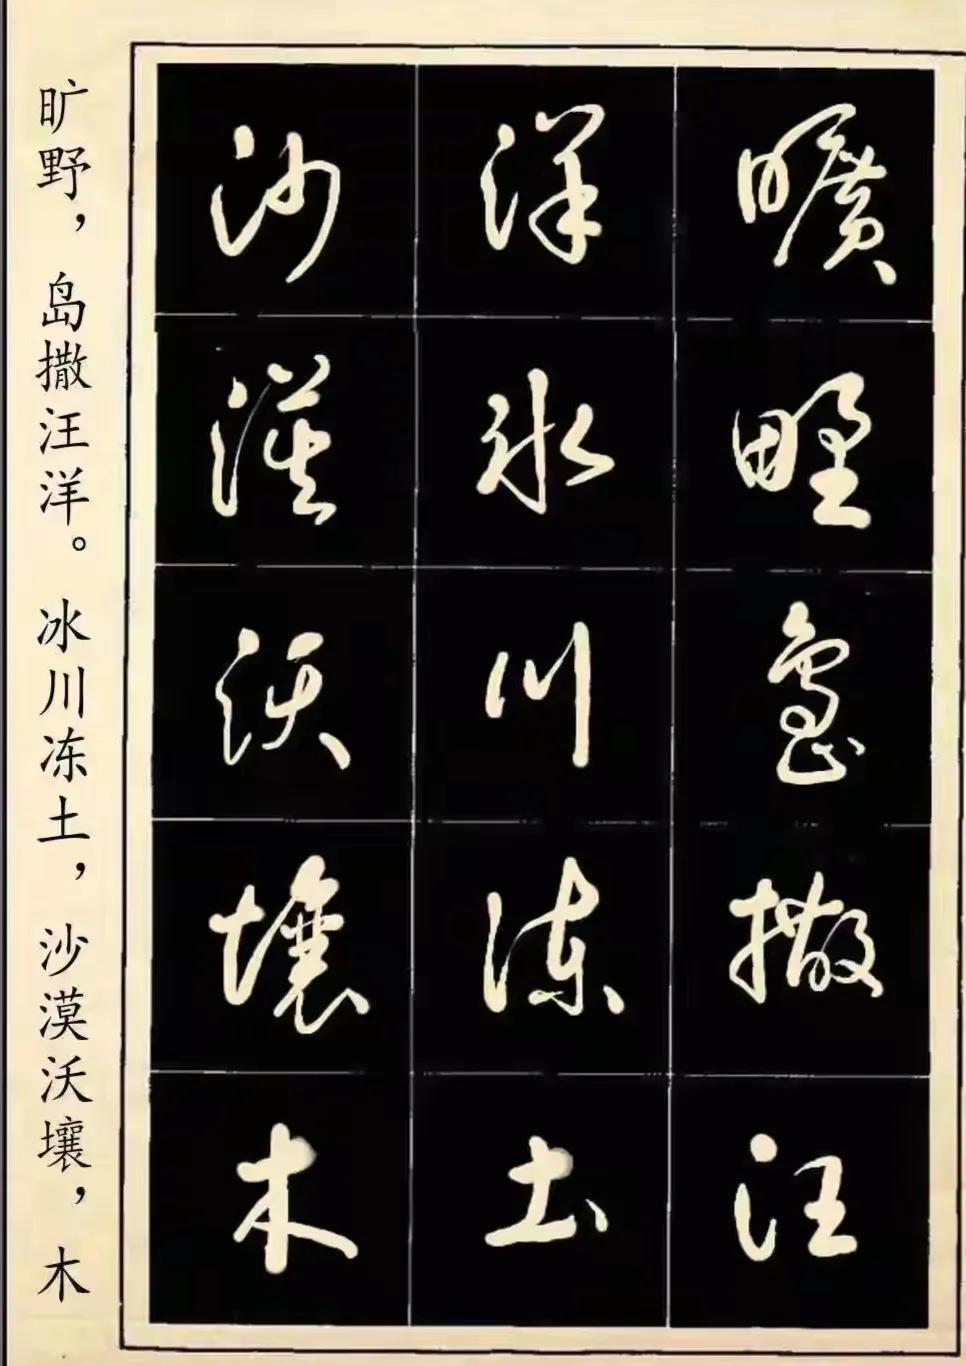 曠野島撒汪
洋冰川凍土
沙漠沃壤木
旷野，岛撒汪洋。冰川冻土，沙漠沃壤，木